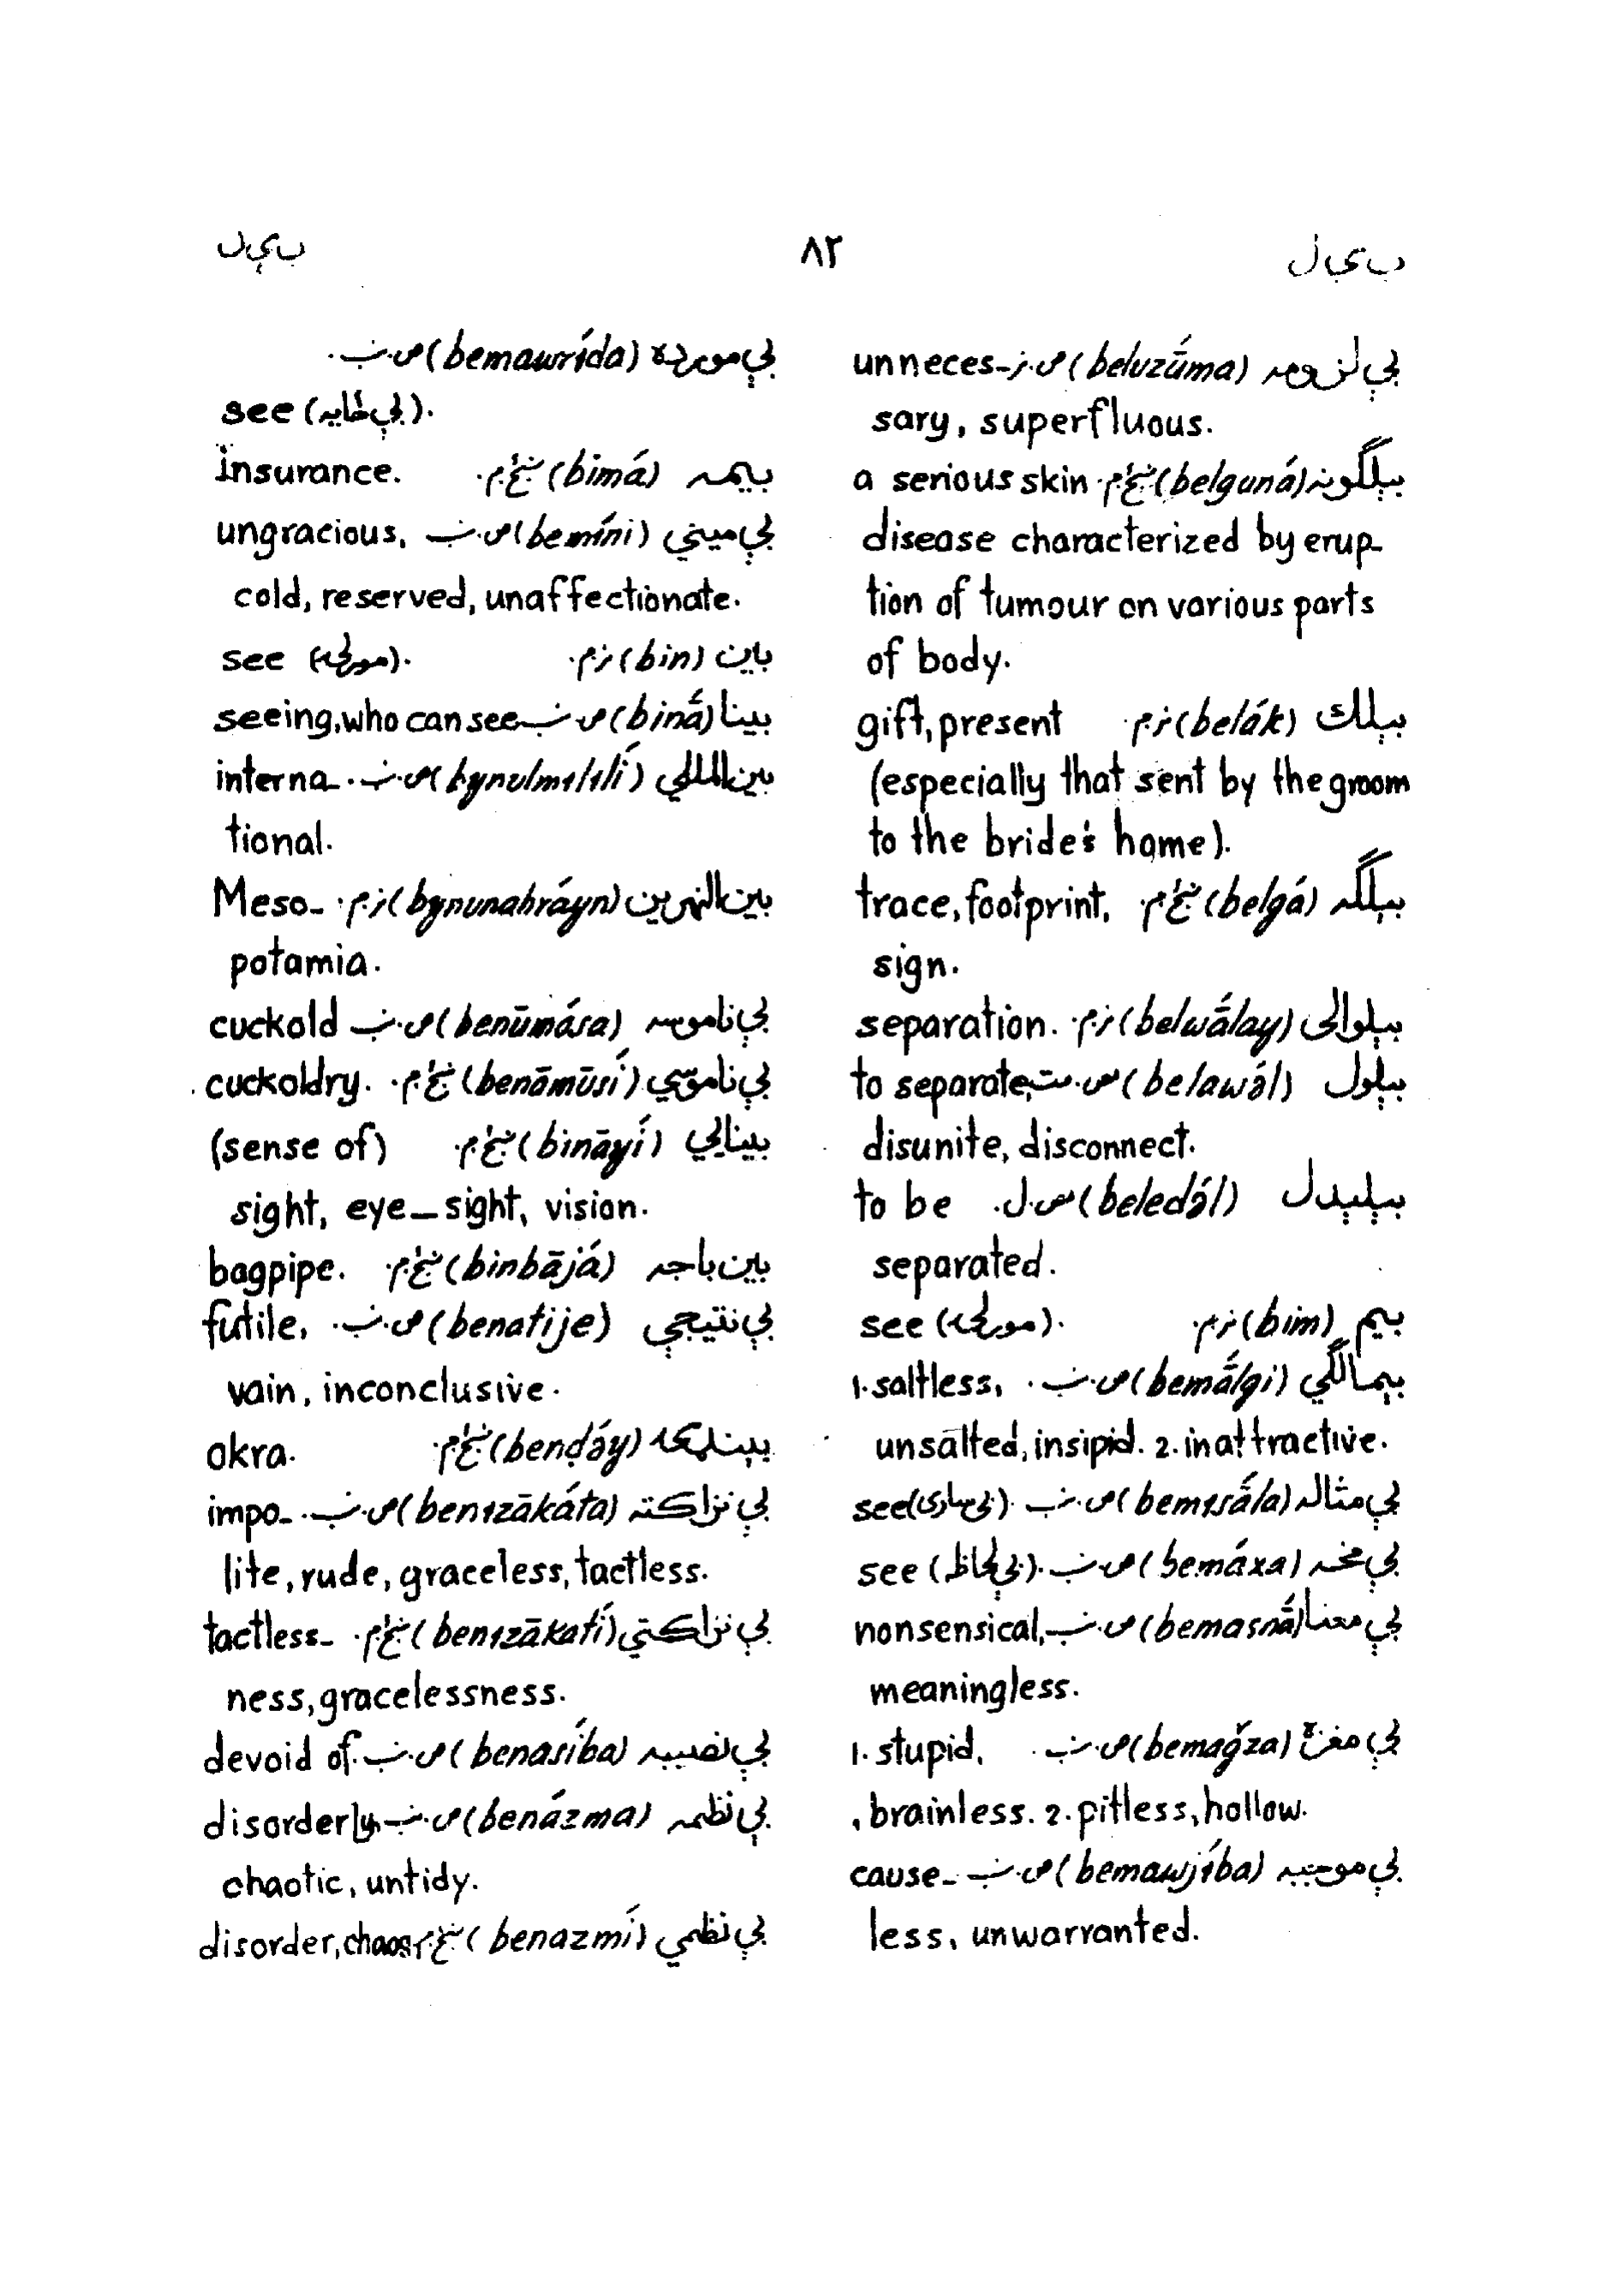 ب ي ل ۸۲ ب ي ل
بې لزومه (beluzū́ma) unneces-
sary, superfluous.
بېلګونه (belguná) a serious skin
disease characterized by erup-
tion of tumour on various parts
of body.
بېلك (belák) gift, present
(especially that sent by the groom
to the bride's home).
بېلګه (belgá) trace, footprint,
sign.
بېلوالى (belwā́lay) separation.
بېلول (belawə́l) to separate,
disunite, disconnect.
بېلېدل (beledə́l) to be
separated.
بيم (bim) see (مورڅه).
بېمالګې (bemā́lgi) 1. saltless,
unsalted, insipid. 2. inattractive.
بې مثاله (bemɪsā́la) see
بې مخه (bemáxa) see (بې لحاظ).
بې معنا (bemasnā́) nonsensical,
meaningless.
بې مغزه (bemağza) 1. stupid,
brainless. 2. pitless, hollow.
بې موجبه (bemawjíba) cause-
less, unwarranted.
بې مورده (bemawrída)
see (بې ځايه).
بيمه (bimá) insurance.
بې ميني (bemíni) ungracious,
cold, reserved, unaffectionate.
باين (bin) see
بينا (binā́) seeing, who can see
بين المللي (bynulmɪlɪlí) interna-
tional.
بين النهرين (bynunahráyn) Meso-
potamia.
بې ناموسه (benūmása) cuckold
بې ناموسي (benāmūsí) cuckoldry.
بينايي (bināyí) (sense of)
sight, eye-sight, vision.
بين باجه (binbājá) bagpipe.
بې نتيجې (benatije) futile,
vain, inconclusive.
بېنډۍ (benḍə́y) okra.
بې نزاکته (benɪzākáta) impo-
lite, rude, graceless, tactless.
بې نزاکتي (benɪzākatí) tactless-
ness, gracelessness.
بې نصيبه (benasíba) devoid of.
بې نظمه (benázma) disorderly,
chaotic, untidy.
بې نظمي (benazmí) disorder, chaos